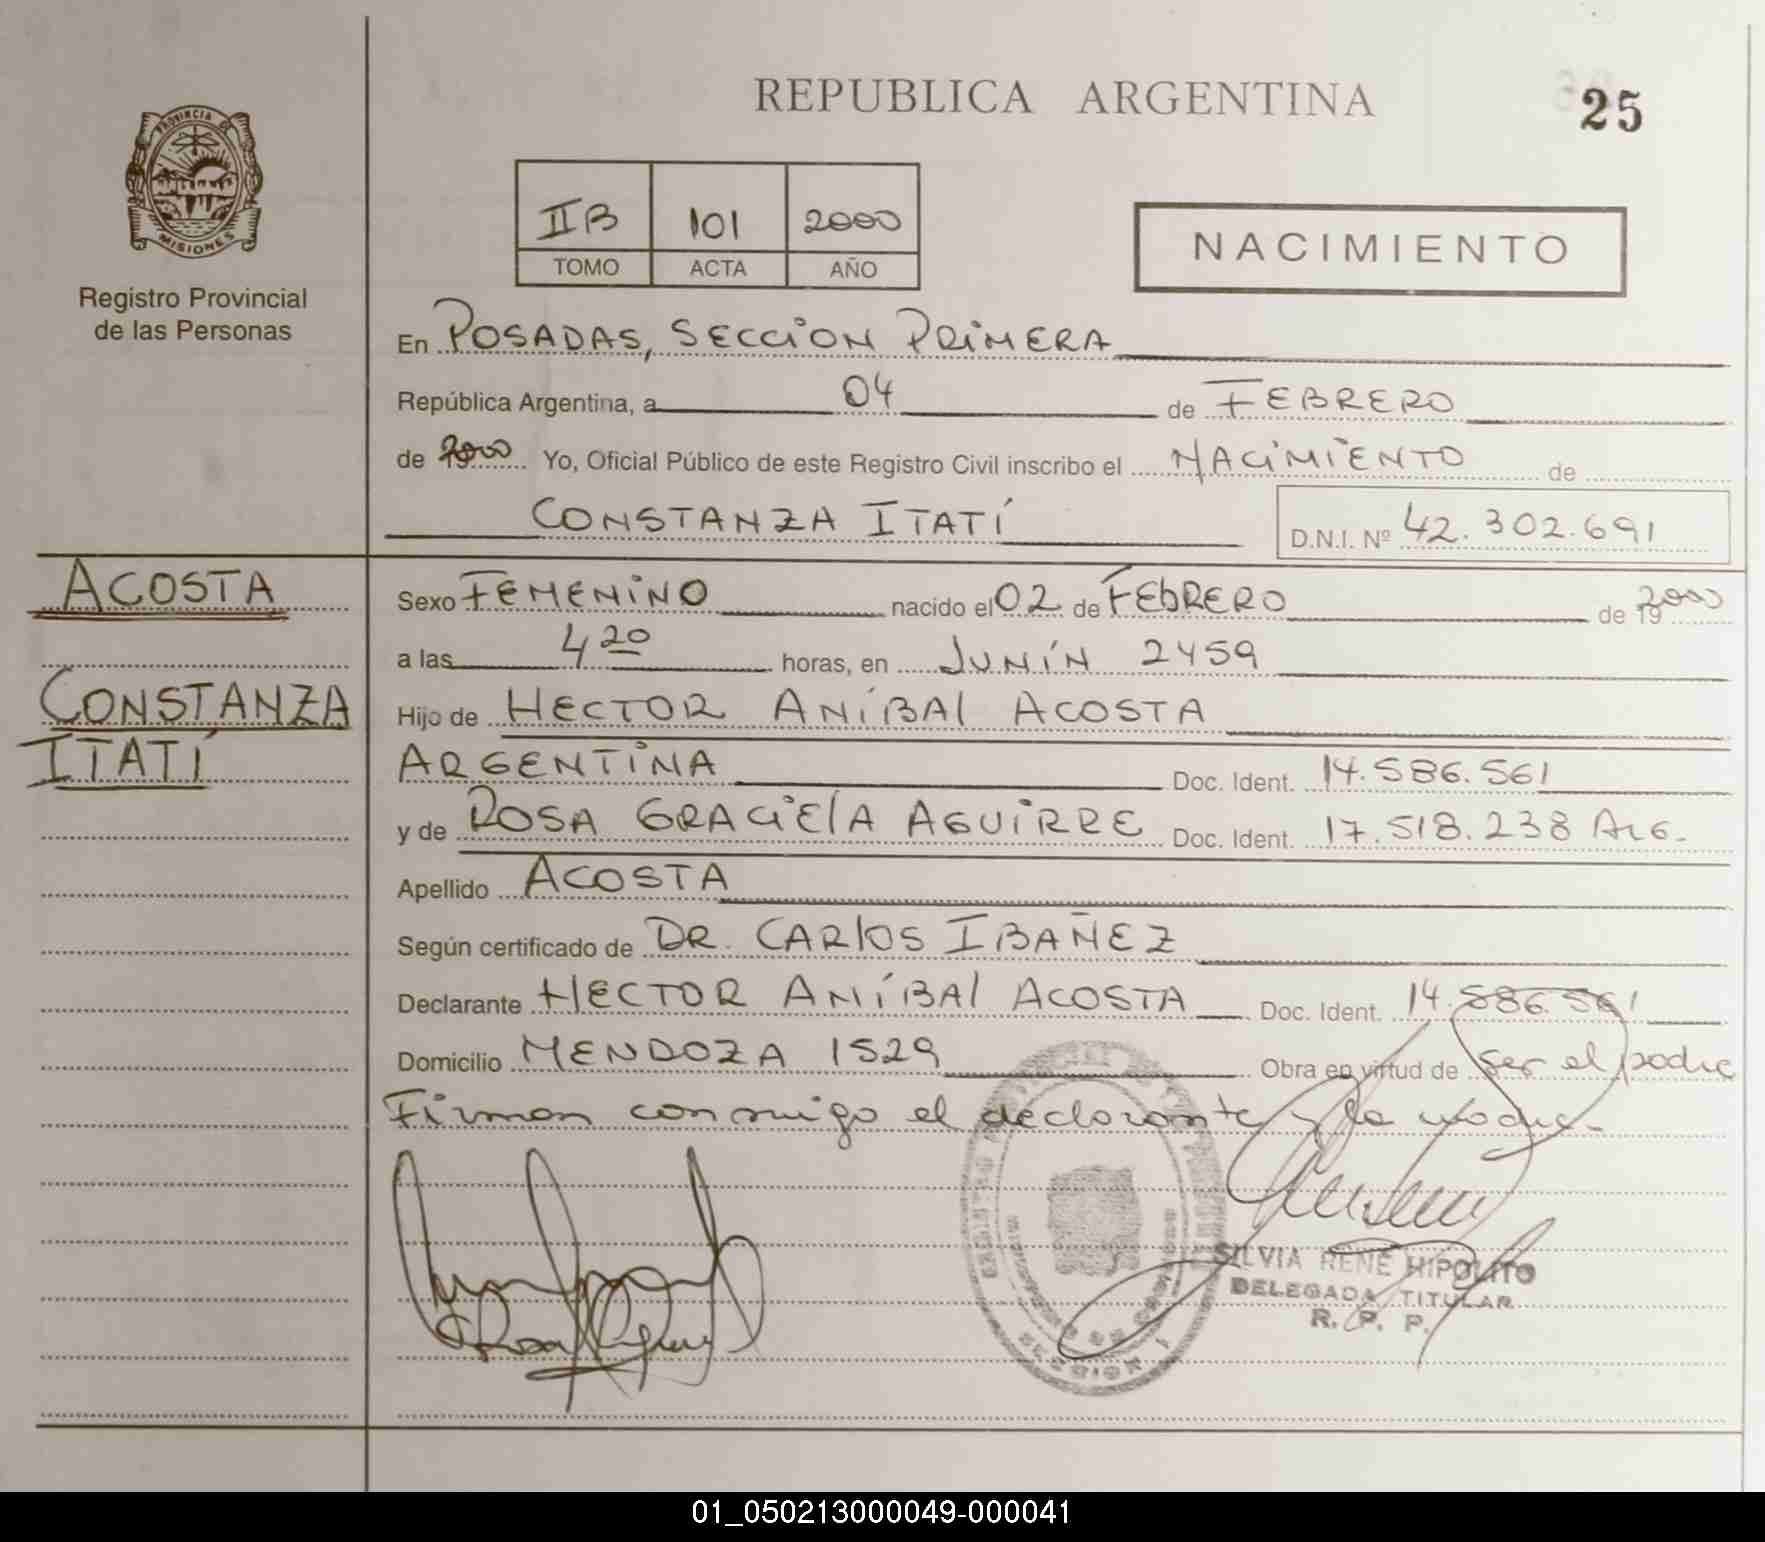 REPUBLICA ARGENTINA
25
PROVINCIA DE
MISIONES
Registro Provincial
de las Personas
IIB 101 2000
TOMO ACTA AÑO
NACIMIENTO
En POSADAS, SECCION PRIMERA
República Argentina, a 04 de FEBRERO
de 2000 Yo, Oficial Público de este Registro Civil inscribo el NACIMIENTO de
CONSTANZA ITATÍ D.N.I. Nº 42.302.691
ACOSTA
CONSTANZA
ITATÍ
Sexo FEMENINO nacido el 02 de FEBRERO de 19 2000
a las 4 20 horas, en JUNÍN 2459
Hijo de HECTOR ANÍBAL ACOSTA
ARGENTINA Doc. Ident. 14.586.561
y de ROSA GRACIELA AGUIRRE Doc. Ident. 17.518.238 ARG.
Apellido ACOSTA
Según certificado de DR. CARLOS IBAÑEZ
Declarante HECTOR ANÍBAL ACOSTA Doc. Ident. 14.586.561
Domicilio MENDOZA 1529 Obra en virtud de ser el padre
Firman conmigo el declarante y la madre.-
SECCION 1
SILVIA RENE HIPOLITO
DELEGADA TITULAR
R. P. P.
01_050213000049-000041